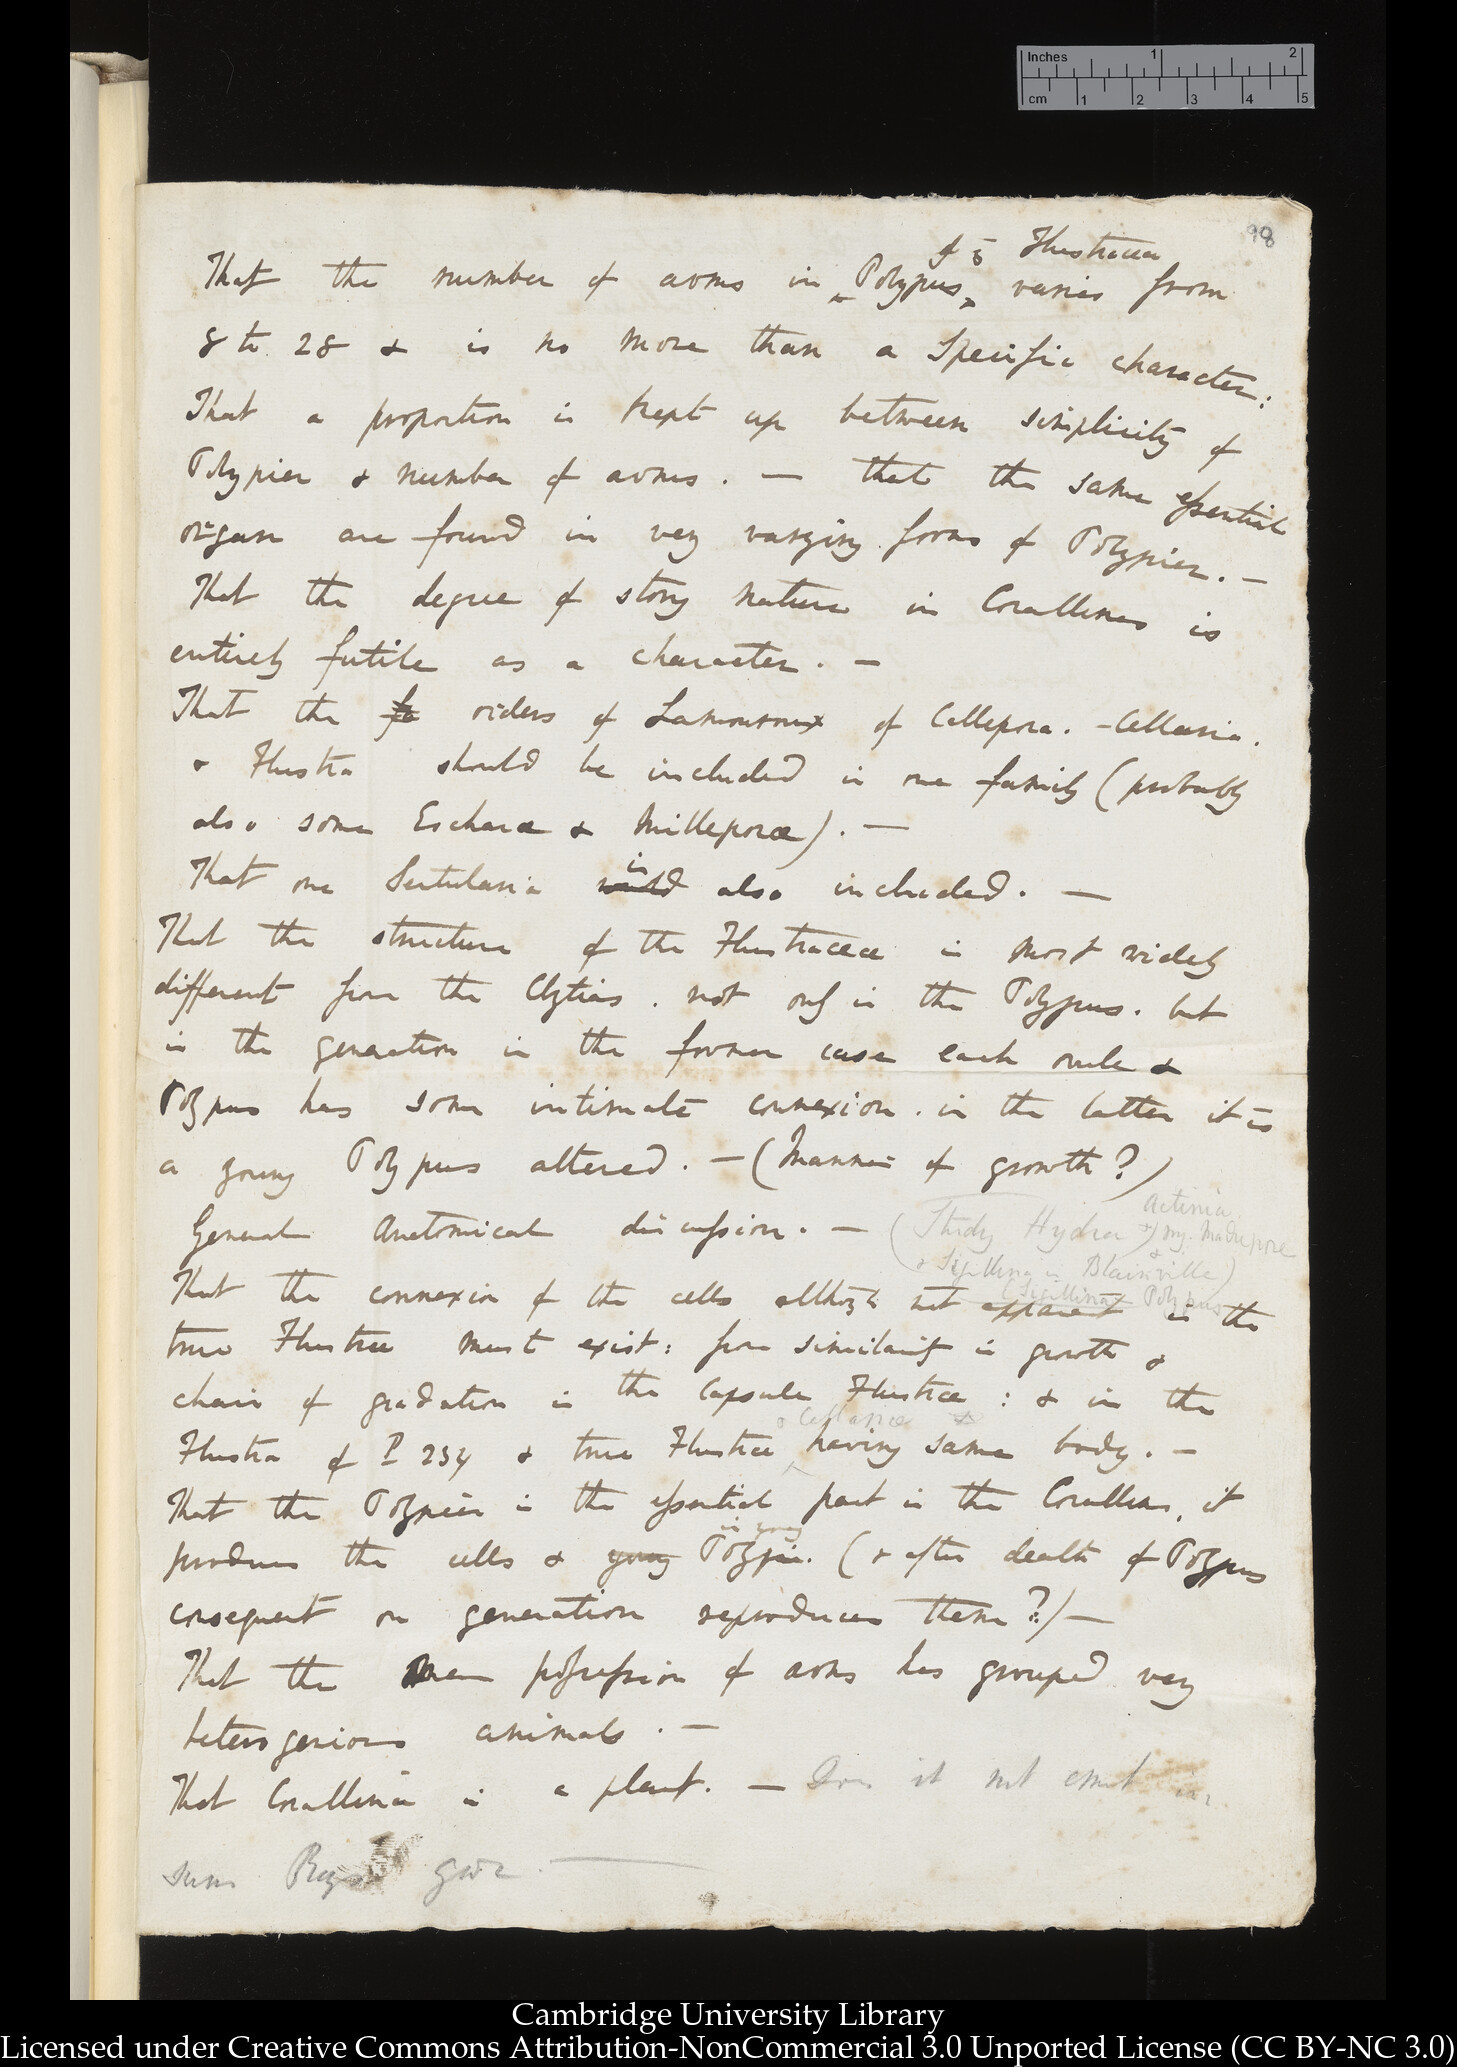 Inches 1 2
cm 1 2 3 4 5
98
of Flustraceæ
That the number of arms in Polypus varies from
8 to 28 & is no more than a specific character:
That a proportion is kept up between simplicity of
Polypier & number of arms. — that the same essential
organs are found in very varying forms of Polypier. —
That the degree of stony nature in Corallines is
entirely futile as a character. —
That the orders of Lamouroux of Cellepora. - Cellaria.
& Flustra should be included in one family (probably
also some Escharæ & Milleporæ). —
is
That one Sertularia would also included. —
That the structure of the Flustraceæ is most widely
different from the Clytias. not only in the Polypus. but
in the generation in the former case each ovule &
Polypus has some intimate connexion. in the latter it is
a young Polypus altered. — (Manner of growth?)
Actinia
General Anatomical discussion. — (Study Hydra my. Madrepore
& Sigillina in Blainville)
(Sigillina Polypus
That the connexion of the cells although not apparent in the
true Flustræ must exist: from similarity in growth &
chain of gradation in the Capsule Flustræ: & in the
& Cellariæ
Flustra of P 234 & true Flustræ having same body. —
That the Polypier is the essential part in the Corallines, it
in young
produces the cells & young Polypier. (& after death of Polypus
consequent on generation reproduces them?) —
That the mere possession of arms has grouped very
heterogenious animals. —
That Corallina is a plant. — Does it not emit
gas —
Cambridge University Library
Licensed under Creative Commons Attribution-NonCommercial 3.0 Unported License (CC BY-NC 3.0)